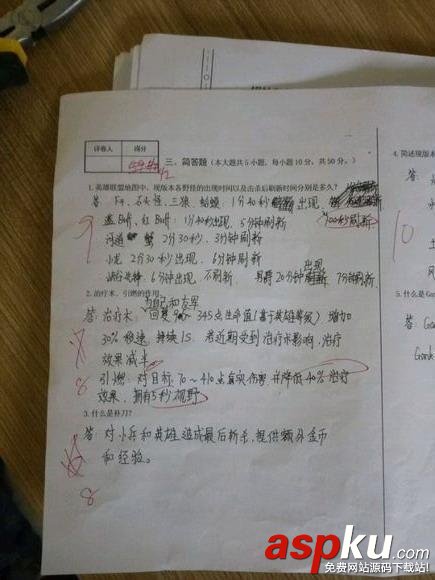 评卷人 得分
三、简答题（本大题共5小题，每小题10分，共50分。）
1.英雄联盟地图中，现版本各野怪的出现时间以及击杀后刷新时间分别是多久？
答：F4、石头怪、三狼、蛤蟆：1分40秒 出现，
100秒刷新
蓝Buff、红Buff：1分40秒出现，5分钟刷新
河道蟹 2分30秒，3分钟刷新
小龙 2分30秒出现，6分钟刷新
峡谷先锋 6分钟出现 不刷新 20分钟出现 7分钟刷新
9
2.治疗术、引燃的作用
与自己和友军
答：治疗术：回复90~345点生命值(基于英雄等级) 增加
30%移速，持续1S。若近期受到治疗术影响，治疗
效果减半
引燃：对目标70~410点真实伤害 并降低40%治疗
效果，拥有5秒视野
8
3.什么是补刀？
答：对小兵和英雄造成最后斩杀，提供额外金币
和经验。
8
4.简述现版本
答：
10
5.什么是Gan
答：Gank
Gank
aspku.com
免费网站源码下载站!